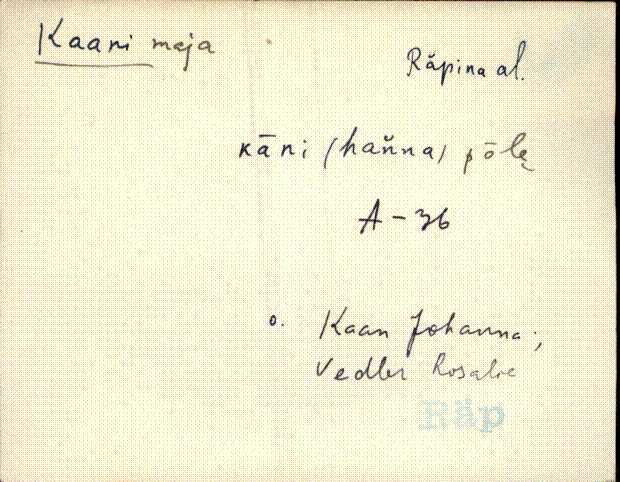 Kaani maja
Räpina al.
kāni (hańna) pōlȩ
A-36
o. Kaan Johanna;
Vedler Rosalie
Räp